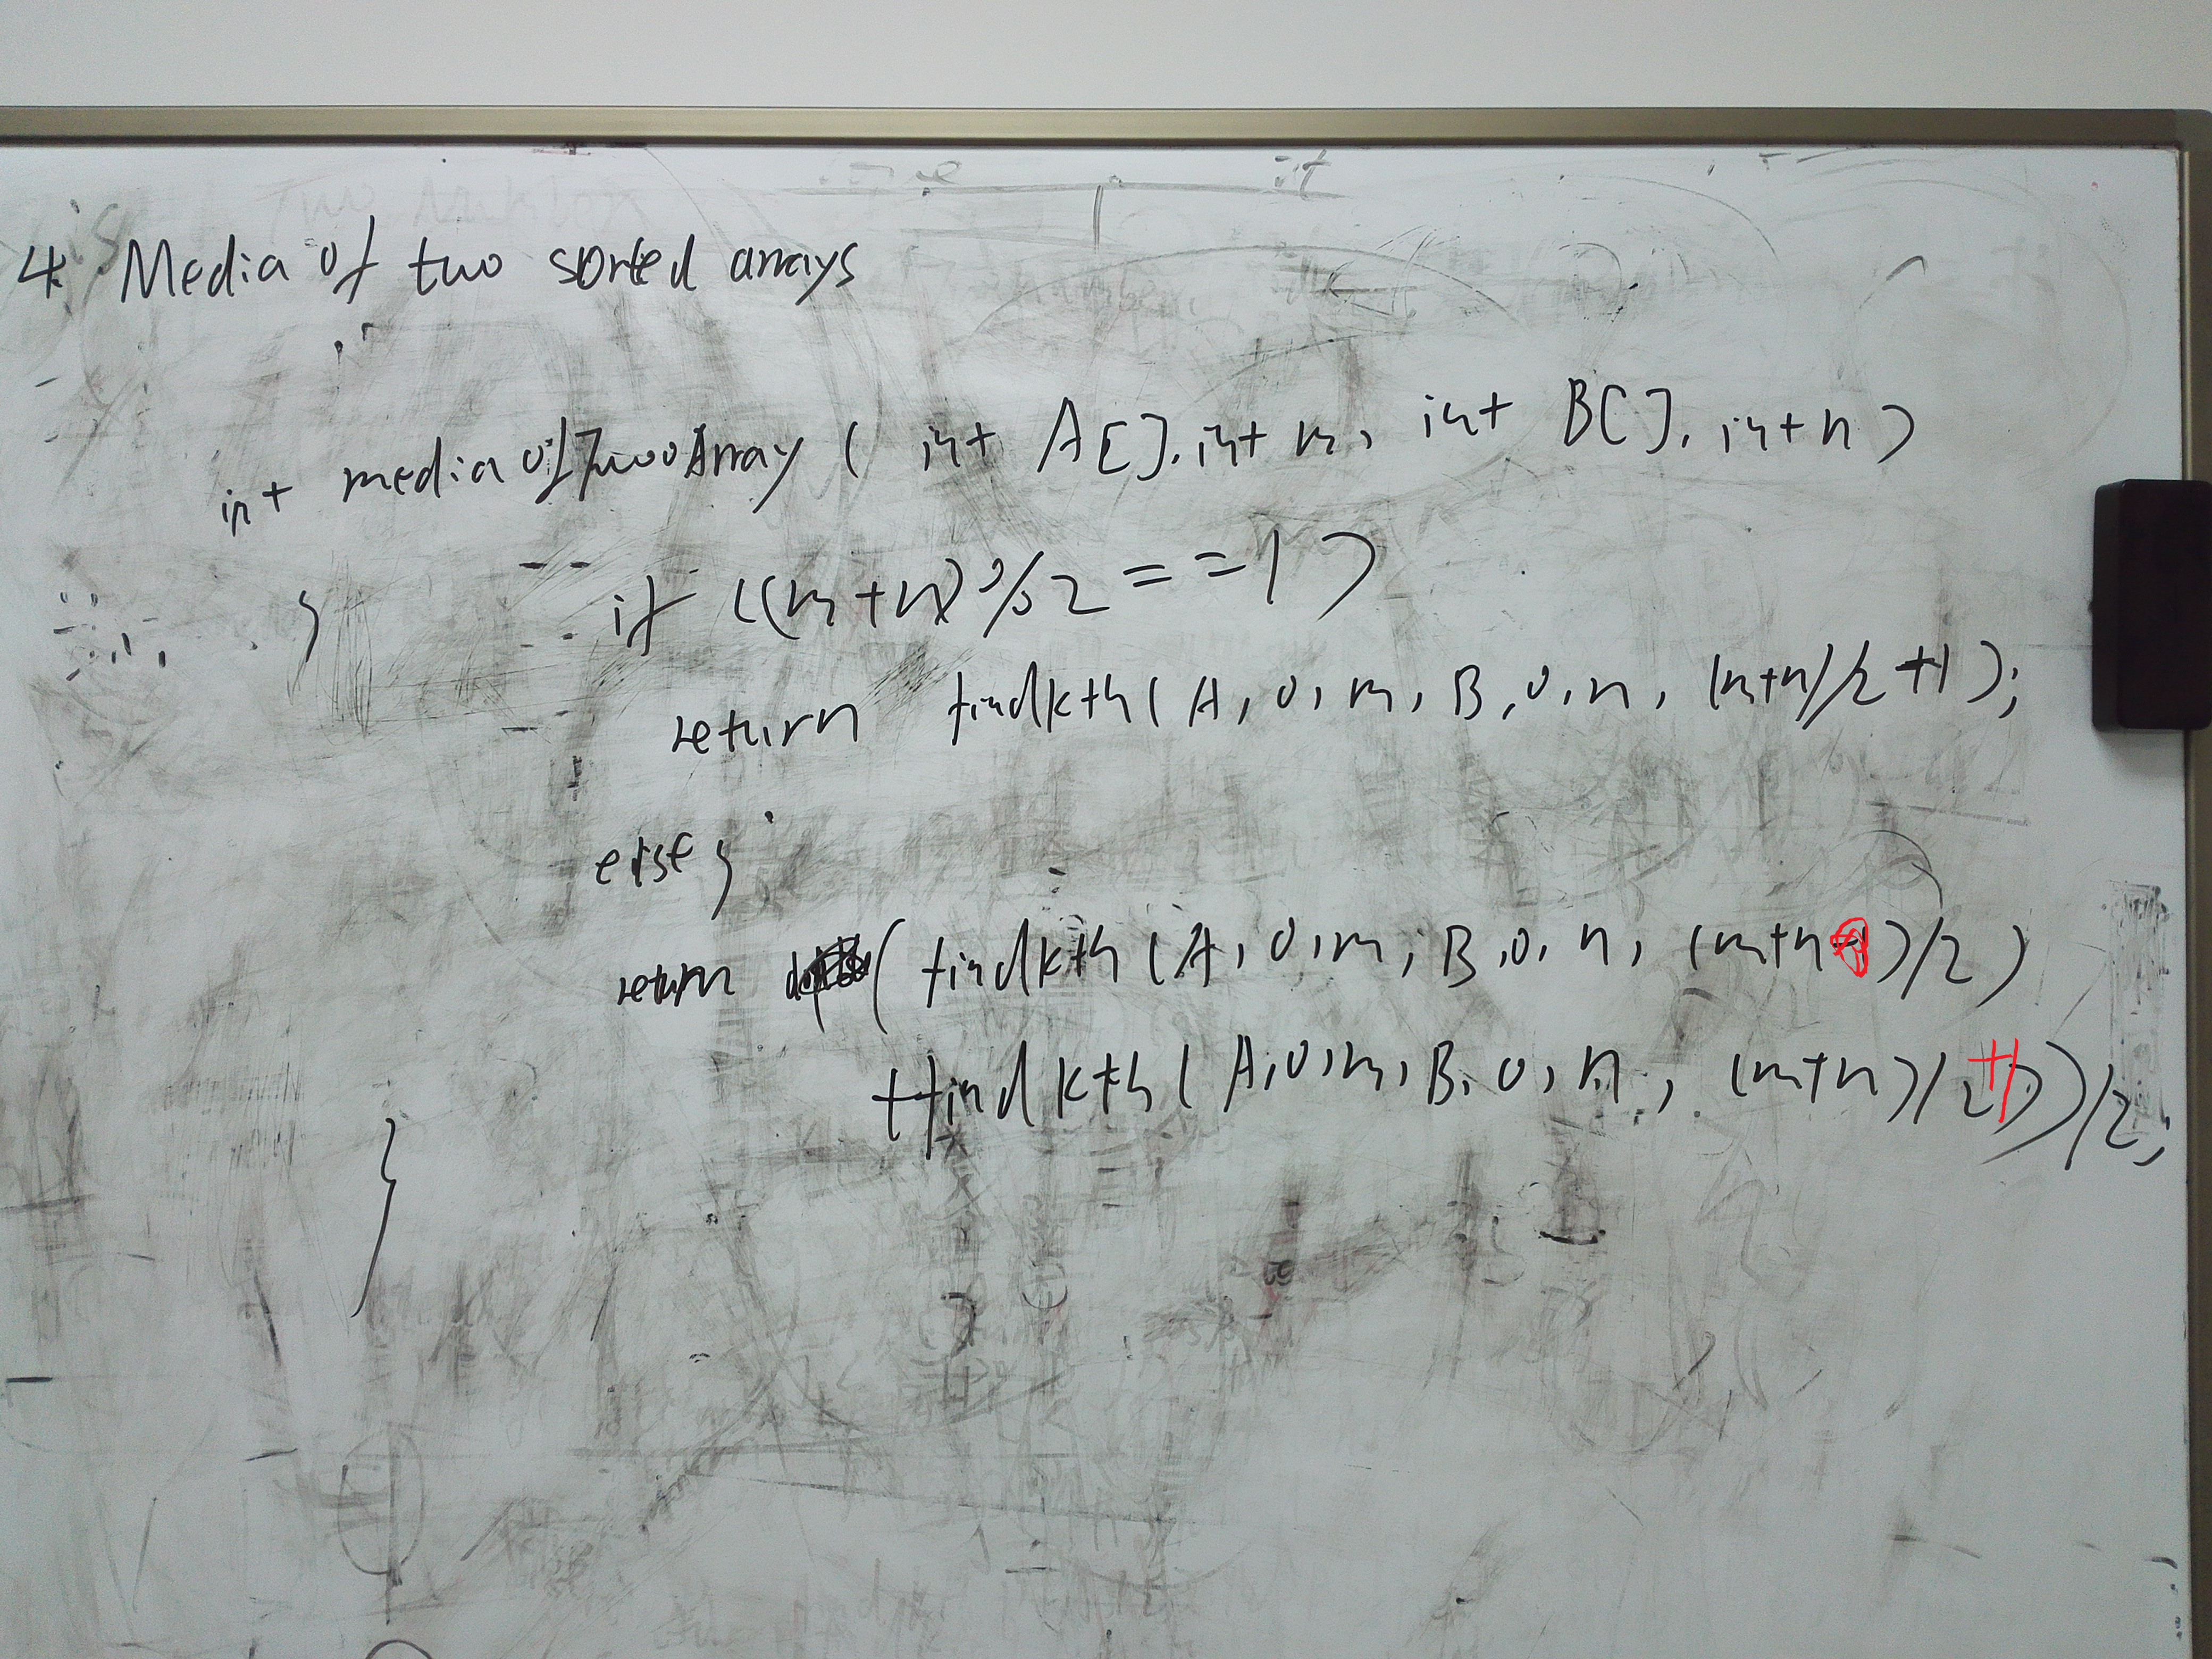 4. Media of two sorted arrays
int mediaofTwoArray ( int A[], int m, int B[], int n )
{
if ((m+n)%2 ==1)
return findkth(A,0,m,B,0,n,(m+n)/2+1);
else {
return (findkth(A,0,m,B,0,n,(m+n)/2)
+findkth(A,0,m,B,0,n,(m+n)/2+1))/2;
}